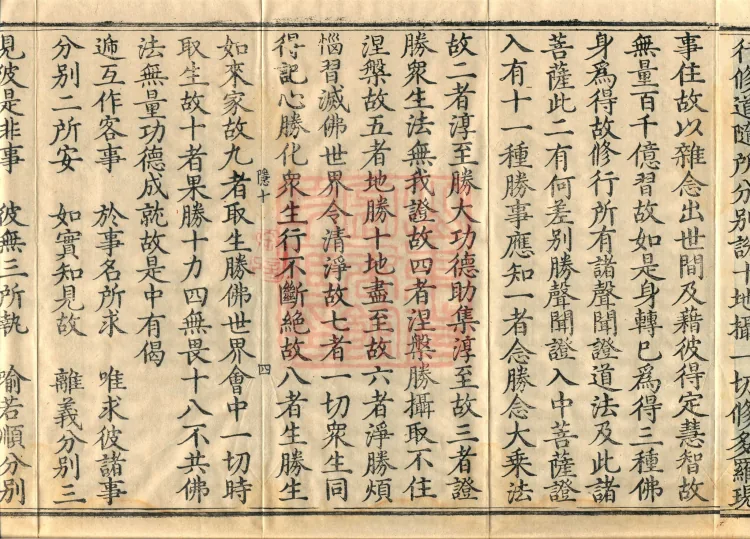 行修道隨所分別說十地攝一切修多羅現
事住故以雜念出世間及藉彼得定慧智故
無量百千億習故如是身轉已爲得三種佛
身爲得故修行所有諸聲聞證道法及此諸
菩薩此二有何差別勝聲聞證入中菩薩證
入有十一種勝事應知一者念勝念大乘法
故二者淳至勝大功德助集淳至故三者證
勝衆生法無我證故四者涅槃勝攝取不住
涅槃故五者地勝十地盡至故六者淨勝煩
惱習滅佛世界令清淨故七者一切衆生同
得記心勝化衆生行不斷絕故八者生勝生
隱十 四
如來家故九者取生勝佛世界會中一切時
取生故十者果勝十力四無畏十八不共佛
法無量功德成就故是中有偈
遞互作客事 於事名所求 唯求彼諸事
分别二所安 如實知見故 離義分别三
見彼是非事 彼無三所執 喻若順分别